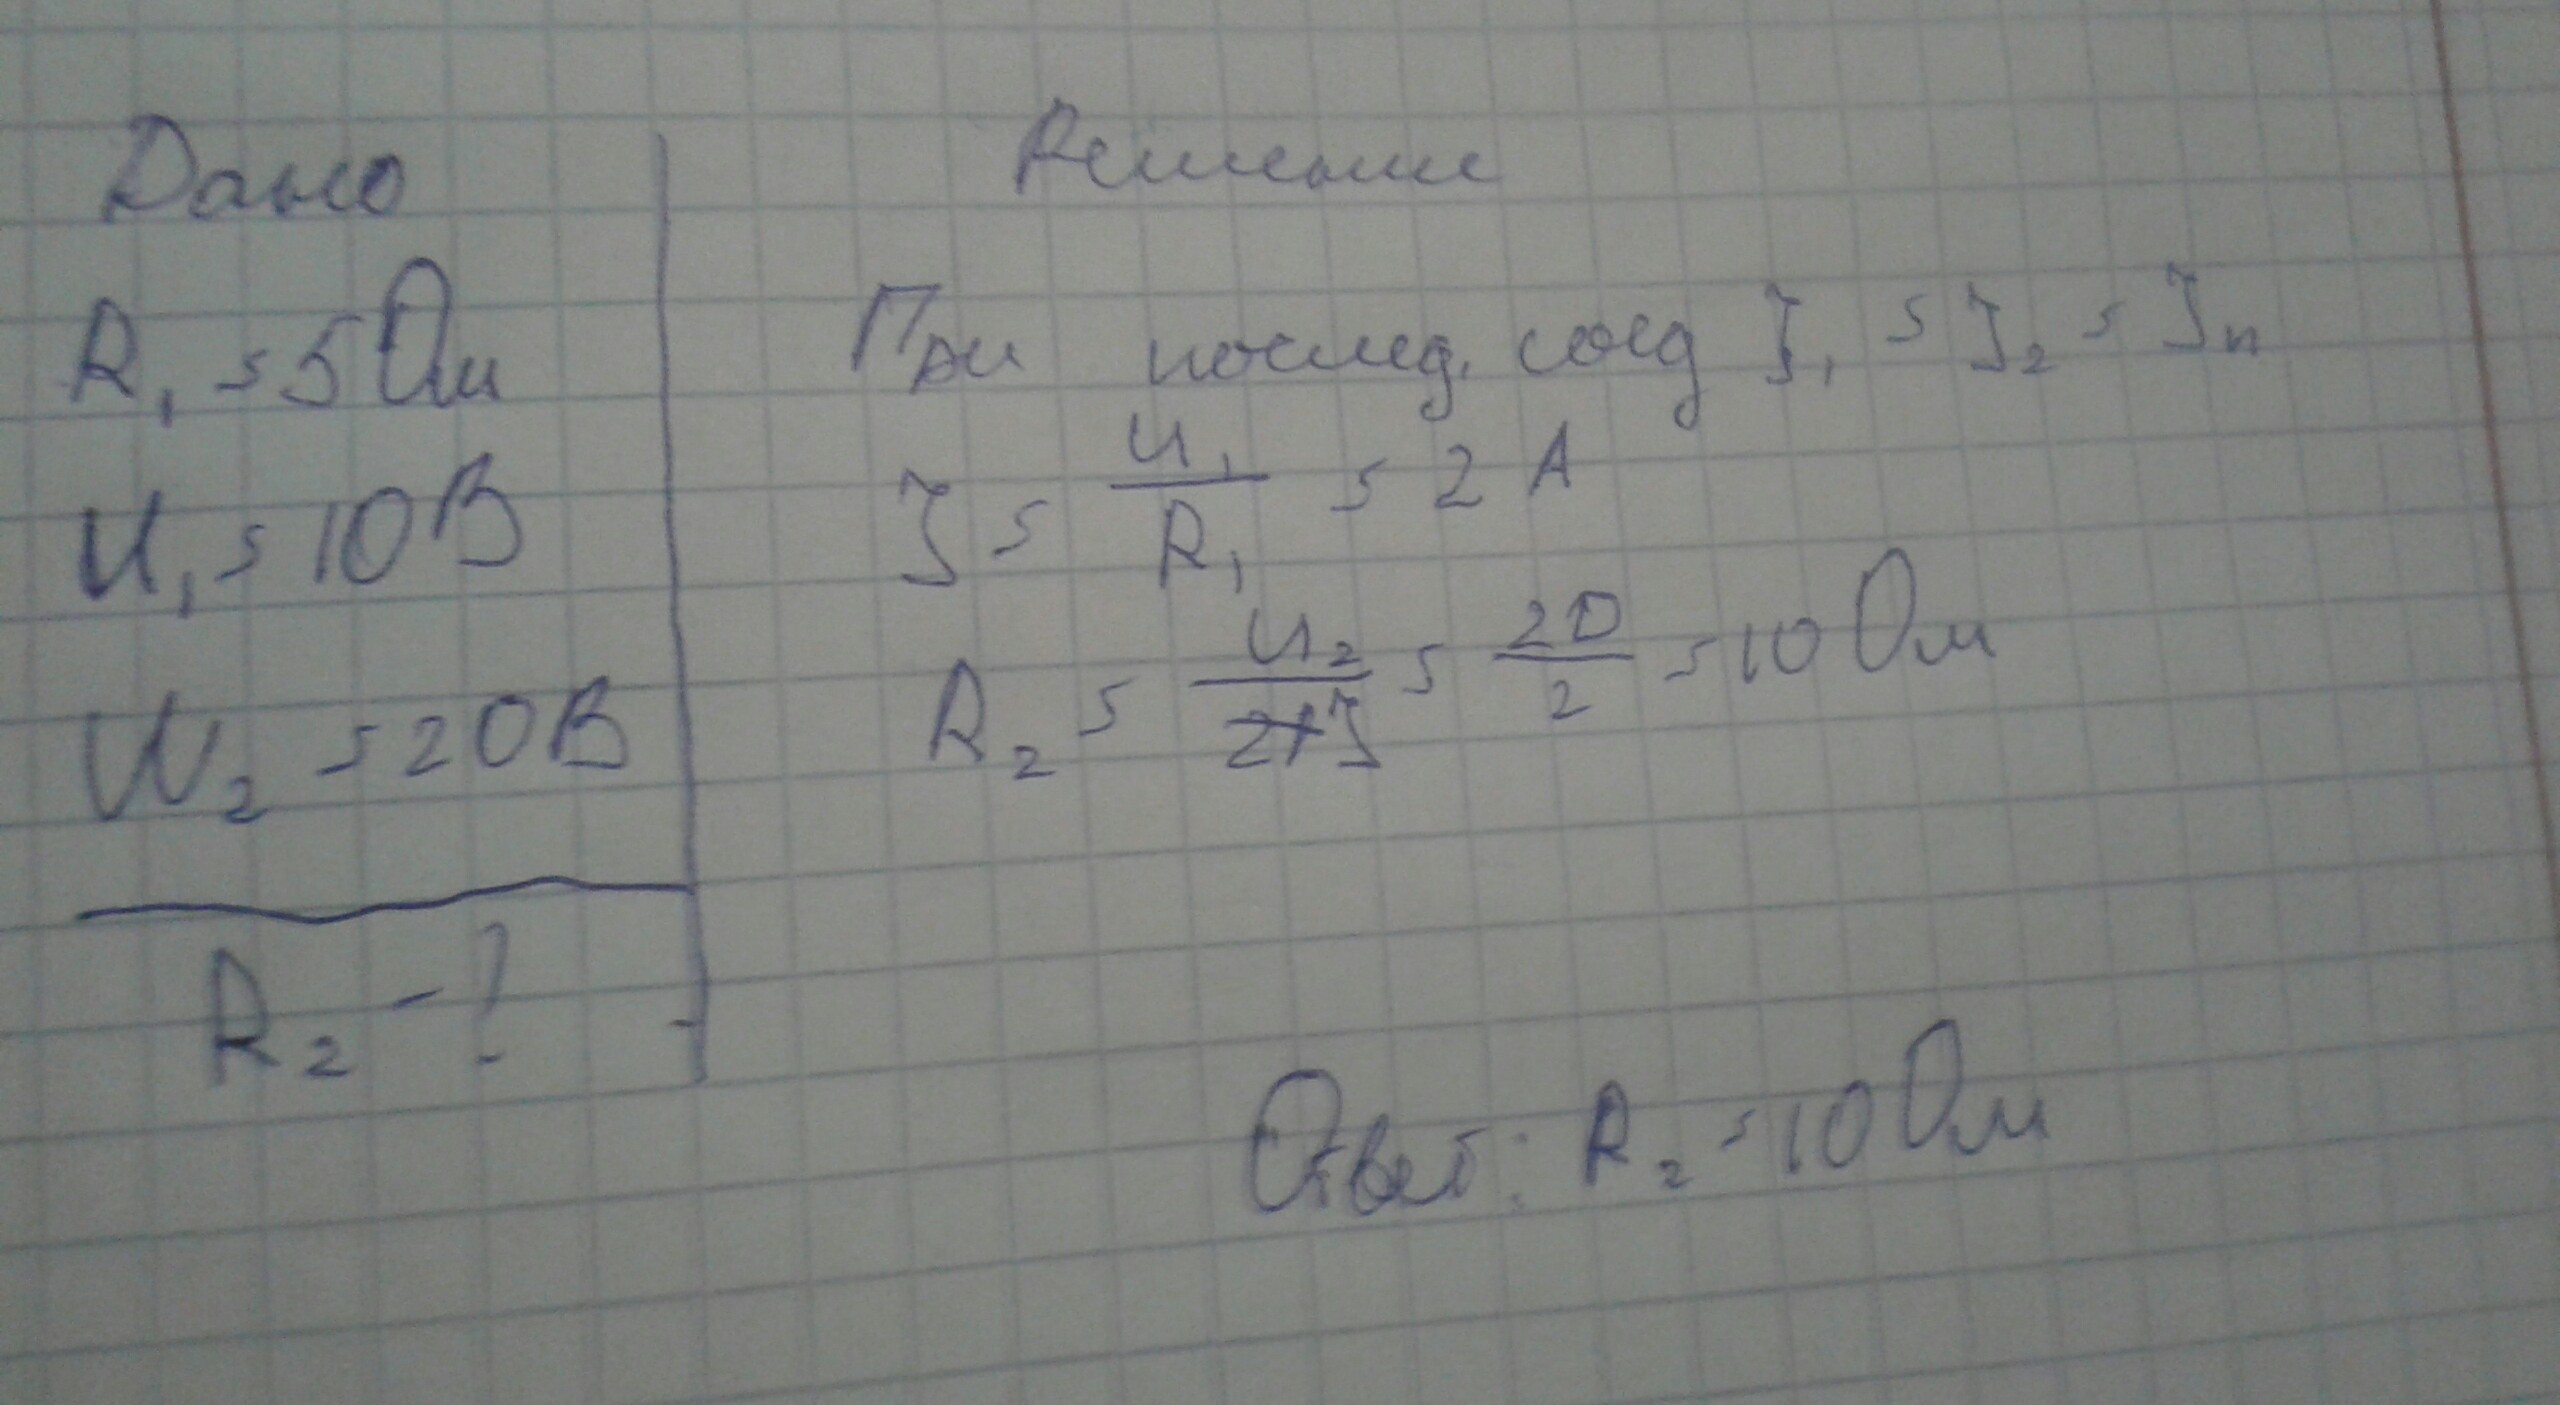 Дано
R₁ = 5 Ом
U₁ = 10 В
U₂ = 20 В
R₂ - ?
Решение
При послед. соед I₁ = I₂ = Iₙ
I = U₁ / R₁ = 2 А
R₂ = U₂ / I = 20 / 2 = 10 Ом
Ответ: R₂ = 10 Ом